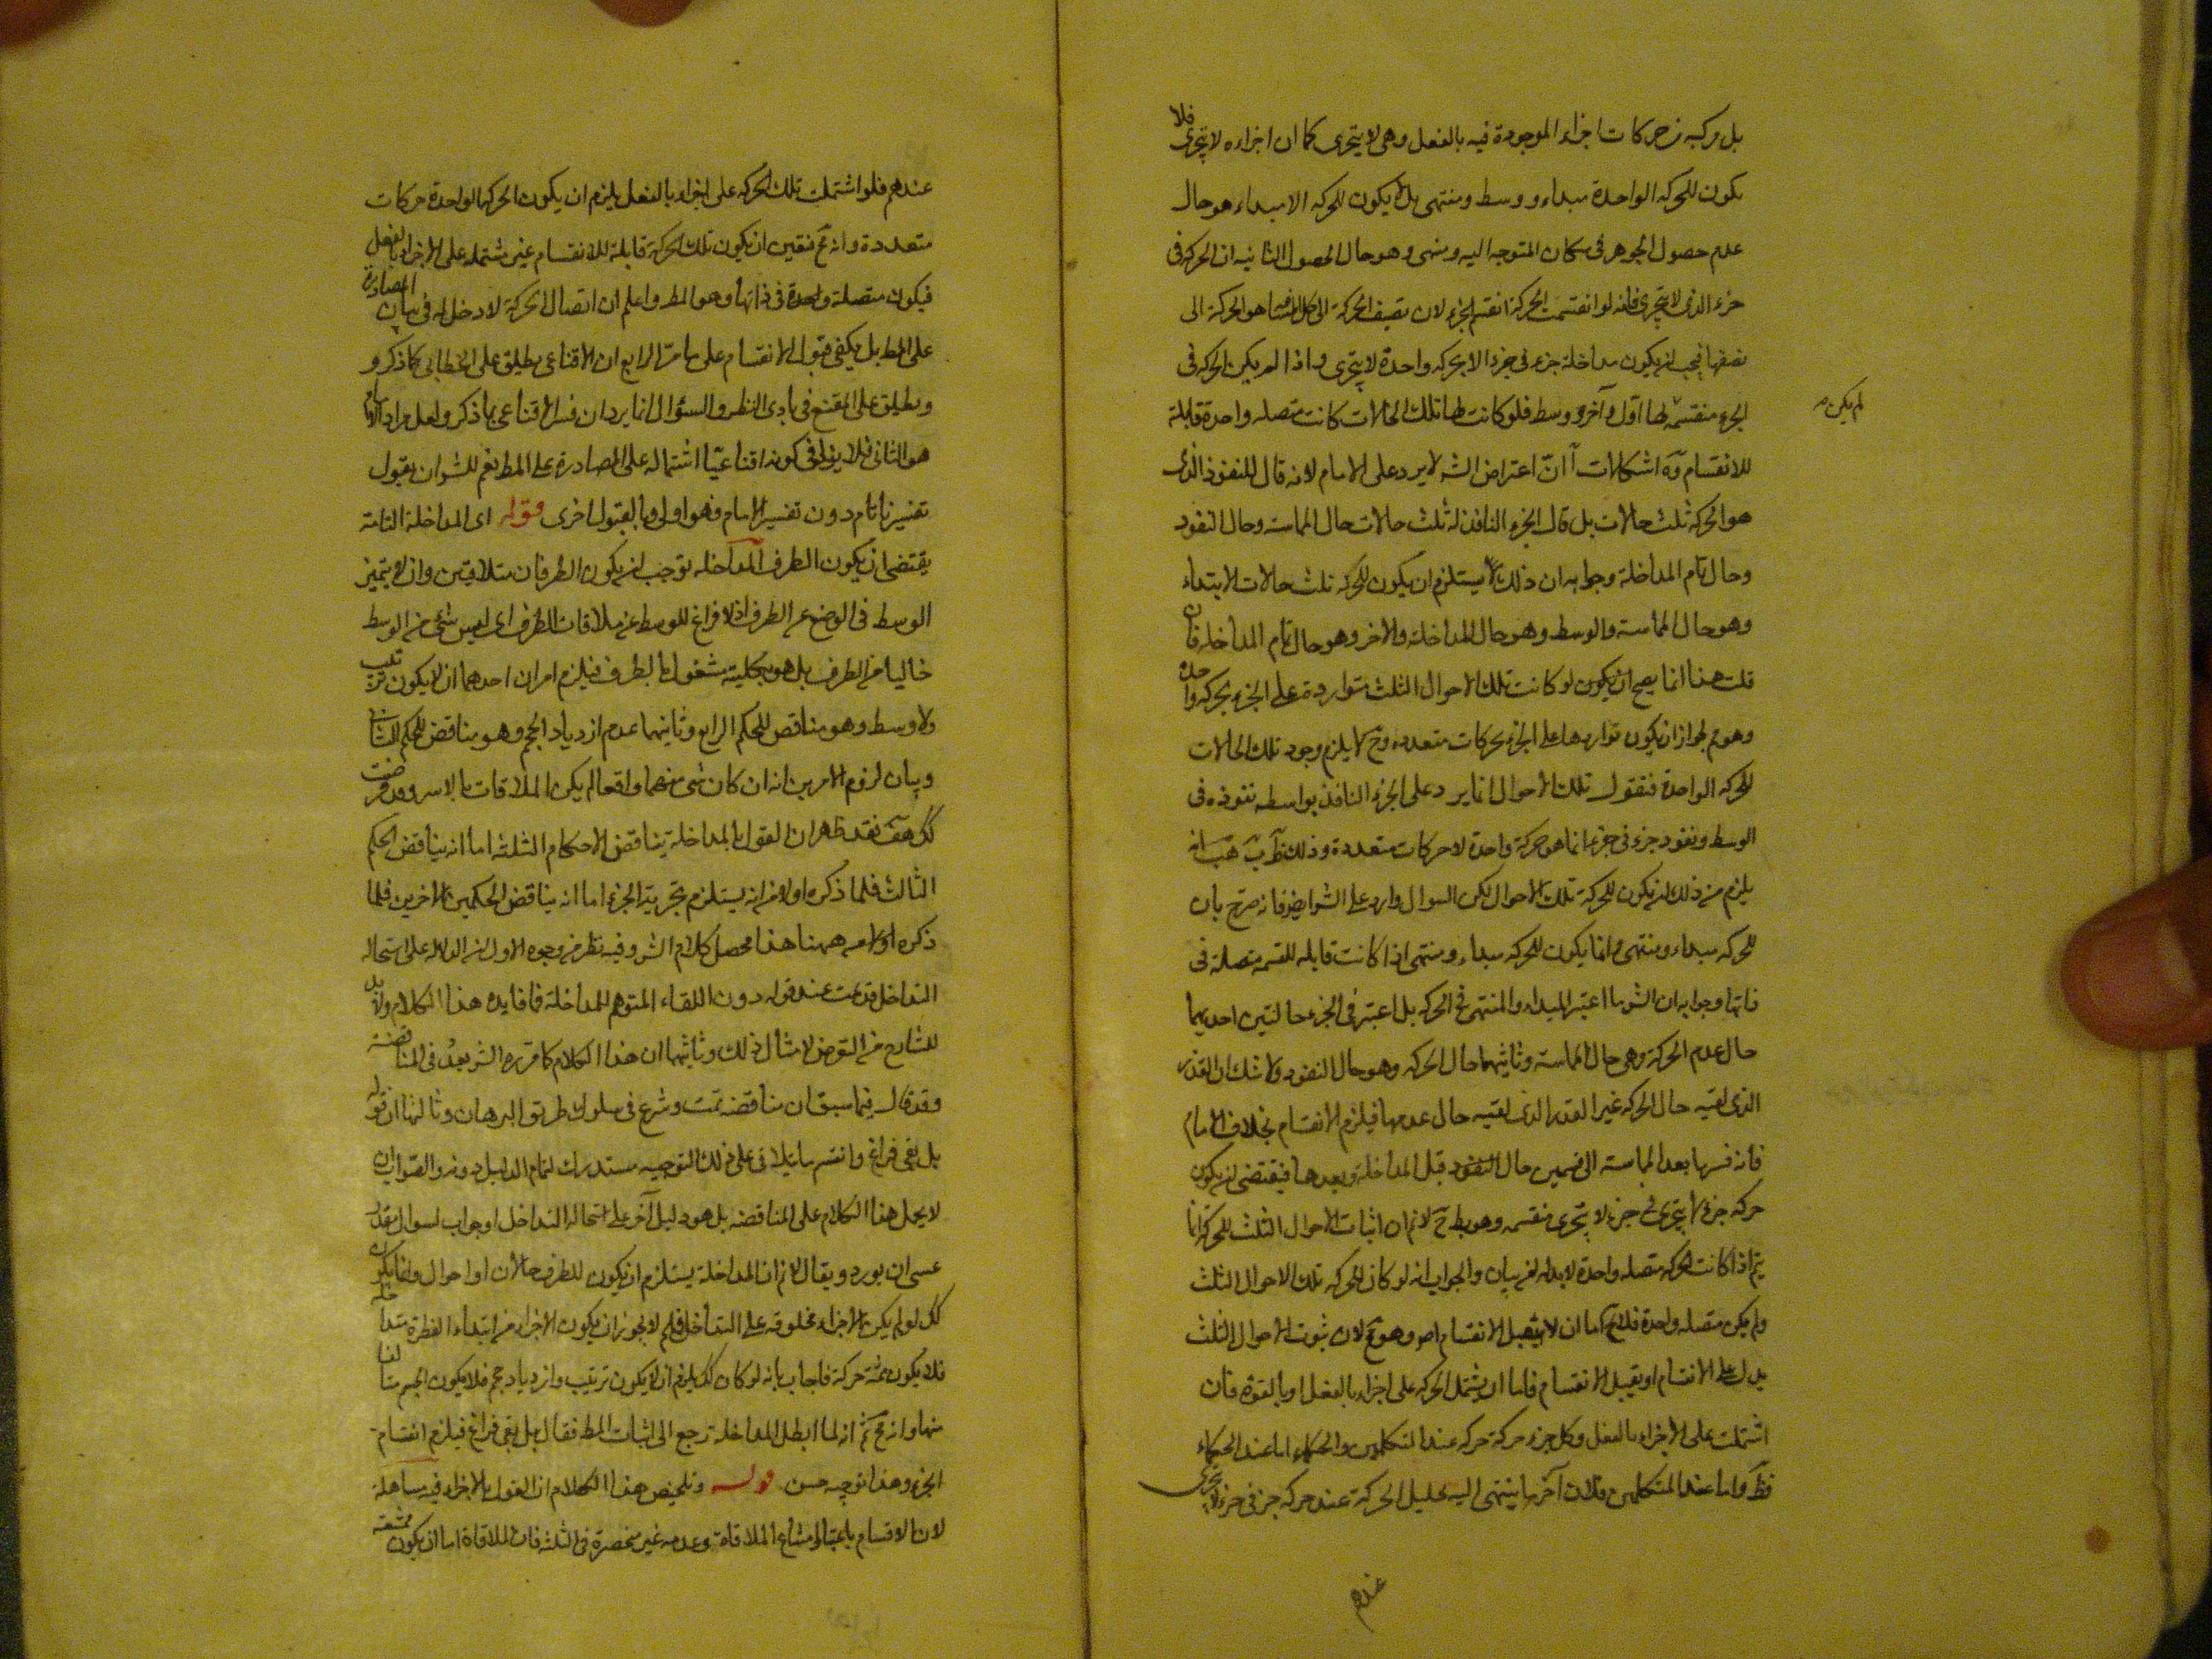 بل مركبة من حركات اجزاء الموجودة فيه بالفعل وهى لا يتجزى كما ان اجزاءه لا يتجزى فلا
يكون للحركة الواحدة مبداء ووسط ومنتهى بل لا يكون للحركة الا مبداء هو حال
عدم حصول الجوهر فى مكان المتوجه اليه ومنتهى وهو حال الحصول الثانية ان الحركة فى
جزء الذى لا يتجزى فانه لو انقسمت الحركة انقسم الجزء لان نصف الحركة الى كل المسافة هو الحركة الى
نصفها فيجب ان يكون مداخلة جزء فى جزء الا بحركة واحدة لا يتجزى واذا لم يكن الحركة فى
الجزء منقسمة لم يكن لها اول وآخر ووسط فلو كانت لها تلك الحالات كانت متصلة واحدة قابلة
للانقسام اشكالات آ ان اعتراض الشه لا يرد على الامام لانه قال للنفوذ الذى
هو الحركة ثلث حالات بل قال الجزء النافذ له ثلث حالات حال المماسة وحال النفوذ
وحال تمام المداخلة وجوابه ان ذلك يستلزم ان يكون للحركة ثلث حالات الابتداء
وهو حال المماسة والوسط وهو حال المداخلة والاخر وهو حال تمام المداخلة فان
قلت هذا انما يصح ان يكون لو كانت تلك الاحوال الثلث متواردة على الجزء بحركة واحدة
وهو مم لجواز ان يكون تواردها على الجزء بحركات متعددة وح لا يلزم وجود تلك الحالات
للحركة الواحدة فنقول تلك الاحوال انما يرد على الجزء النافذ بواسطة نفوذه فى
الوسط ونفوذ جزء فى جزء انما هو حركة واحدة لا حركات متعددة وذلك ظ ب هب انه
يلزم من ذلك ان يكون للحركة تلك الاحوال لكن السوال وارد على الش ايضا فانه صرح بان
للحركة مبداء ومنتهى وانما يكون للحركة مبداء ومنتهى اذا كانت قابلة للقسمة متصلة فى
ذاتها وجوابه ان الش ما اعتبر المبداء والمنتهى فى الحركة بل اعتبر فى الجزء حالتين احديهما
حال عدم الحركة وهى حال المماسة وثانيهما حال الحركة وهو حال النفوذ ولا شك ان القدر
الذى لقيه حال الحركة غير القدر الذى لقيه حال عدمها فيلزم الانقسام بخلاف الامام
فانه فسرها بعد المماسة الى قسمين حال النفوذ قبل المداخلة وبعدها فيقتضى ان يكون
حركة جزء لا يتجزى فى جزء لا يتجزى منقسمة وهو بط ج لانم ان اثبات الاحوال الثلث للحركة انما
يتم اذا كانت الحركة متصلة واحدة لا بد له من بيان والجواب انه لو كان للحركة تلك الاحوال الثلث
ولم يكن متصلة واحدة فلا يخ اما ان لا يقبل الانقسام اصلا وهو مح لان ثبوت الاحوال الثلث
يدل على الانقسام او يقبل الانقسام فاما ان يشتمل الحركة على اجزاء بالفعل او بالقوة فان
اشتملت على الاجزاء بالفعل وكل جزء حركة حركة عند المتكلمين والحكماء اما عند الحكماء
فظ واما عند المتكلمين فلان آخر ما ينتهى اليه تحليل الحركة عند حركة جزء فى جزء لا يتجزى
عندهم
عندهم فلو اشتملت تلك الحركة على اجزاء بالفعل يلزم ان يكون الحركة الواحدة حركات
متعددة وانه مح فتعين ان يكون تلك الحركة قابلة للانقسام غير مشتملة على الاجزاء بالفعل
فيكون متصلة واحدة فى ذاتها وهو المط واعلم ان اتصال الحركة لا دخل له فى بيان المصادرة
على المط بل يكفى قبول الانقسام على ما مر الرابع ان الاقناعى يطلق على الخطابى كما ذكره
ويطلق على المقنع فى بادى النظر والسؤال انما يرد ان فسر الاقناعى بما ذكره ولعل مراد الامام
هو الثانى فلا ينافى كونه اقناعيا اشتماله على المصادرة على المط نعم للش ان يقول
تفسيرنا تام دون تفسير الامام فهو اولى وبالقبول احرى قوله اى المداخلة التامة
يقتضى ان يكون الطرف المداخلة يوجب ان يكون الطرفان متلاقيين وان لا يتميز
الوسط فى الوضع عن الطرف اذ لا فراغ للوسط عن ملاقات الطرف اى ليس شئ من الوسط
خاليا من الطرف بل هو بكليته مشغول بالطرف فيلزم امران احدهما ان لا يكون ترتيب
ولا وسط وهو مناقض للحكم الرابع وثانيهما عدم ازدياد الحجم وهو مناقض للحكم الثانى
وبيان لزوم الامرين انه ان كان شئ منهما واقعا لم يكن الملاقات بالاسر وقد فرضت
كك هف فقد ظهر ان القول بالمداخلة يناقض الاحكام الثلثة اما انه يناقض الحكم
الثالث فلما ذكره اولا من انه يستلزم تجزية الجزء اما انه يناقض الحكمين الاخرين فلما
ذكره اولا ههنا هذا محصل كلام الش وفيه نظر من وجوه الاول ان الدلالة على استحالة
التداخل قد تمت عند قوله دون اللقاء المتوهم للمداخلة فما فايدة هذا الكلام ولا بد
للشارح من التعرض لامثال ذلك وثانيها ان هذا الكلام كما قرره الش يعود فى المناقضة
وقد قال فيما سبق ان مناقضته تمت وشرع فى سلوك طريق البرهان وثالثها ان قوله
بل بقى فراغ وانقسم ما يلاقى على ذلك التوجيه مستدرك لتمام الدليل دونه والصواب ان
لا يحمل هذا الكلام على المناقضة بل هو دليل آخر على استحالة التداخل او جواب لسوال مقدر
عسى ان يورد ويقال لانم ان المداخلة يستلزم ان يكون للطرف حالان او احوال وانما يكون
كك لو لم يكن الاجزاء مخلوقة على التداخل فلم لا يجوز ان يكون الاجزاء من ابتداء الفطرة متداخلة
فلا يكون ثمة حركة فاجاب بانه لو كان كك يلزم ان لا يكون ترتيب وازدياد حجم فلا يكون الجسم متالفا
منها وانه مح ثم انه لما ابطل المداخلة رجع الى اثبات المط فقال بل بقى فراغ فيلزم انقسام
الجزء وهذا توجيه حسن قوله وتلخيص هذا الكلام ان القول بالاجزاء فيه مساهلة
لان الاقسام باعتبار امتناع الملاقاة وعدمه غير منحصرة فى الثلثة فان الملاقاة اما ان يكون ممتنعة